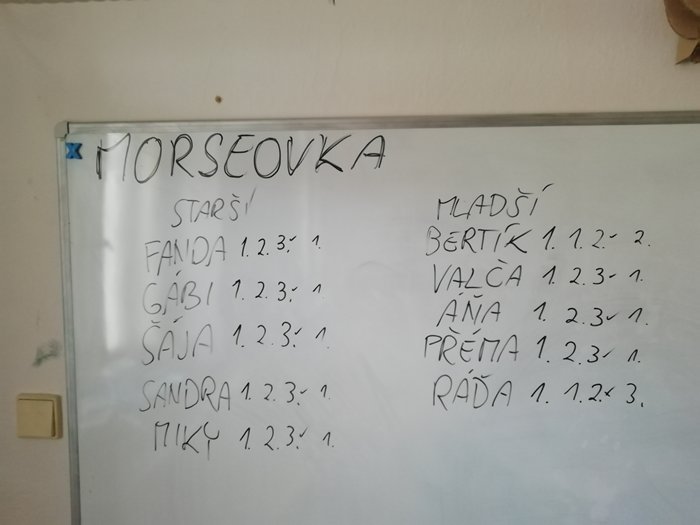 MORSEOVKA
STARŠÍ
FANDA 1. 2. 3.✓ 1.
GÁBI 1. 2. 3.✓ 1.
ŠÁJA 1. 2. 3.✓ 1.
SANDRA 1. 2. 3.✓ 1.
MIKY 1. 2. 3.✓ 1.
MLADŠÍ
BERTÍK 1. 1. 2.✓ 2.
VALČA 1. 2. 3✓ 1.
ÁŇA 1. 2. 3✓ 1.
PŘÉMA 1. 2. 3✓ 1.
RÁĎA 1. 1. 2.✓ 3.